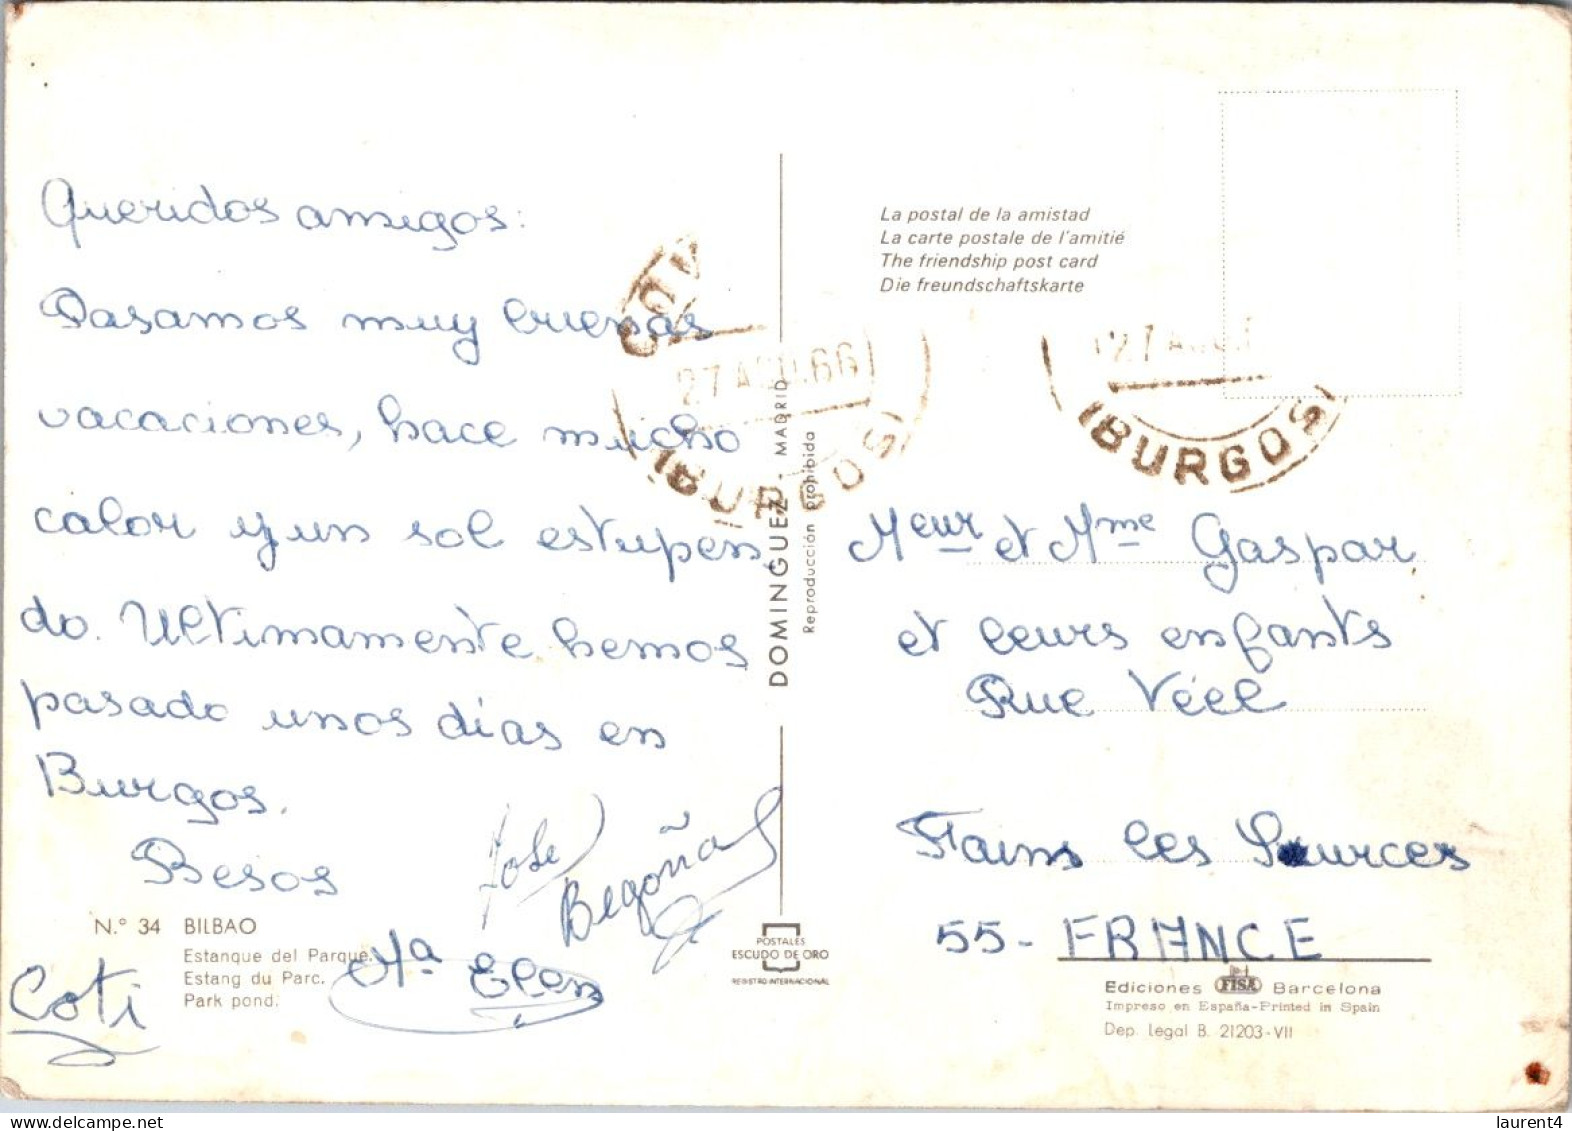 Queridos amigos:
Pasamos muy buenas
vacaciones, hace mucho
calor y un sol estupen
do. Ultimamente hemos
pasado unos días en
Burgos.
Besos
Jose
Begoña
Mª Elen
Coti
N.° 34 BILBAO
Estanque del Parque.
Estang du Parc.
Park pond.
DOMINGUEZ - MADRID
Reproducción prohibida
POSTALES
ESCUDO DE ORO
REGISTRO INTERNACIONAL
La postal de la amistad
La carte postale de l'amitié
The friendship post card
Die freundschaftskarte
27 AGO.66
BURGOS
27 AGO
BURGOS
Meur et Mme Gaspar
et leurs enfants
Rue Véel
Fains les Sources
55 - FRANCE
Ediciones FISA Barcelona
Impreso en España-Printed in Spain
Dep. legal B. 21203-VII
laurent4